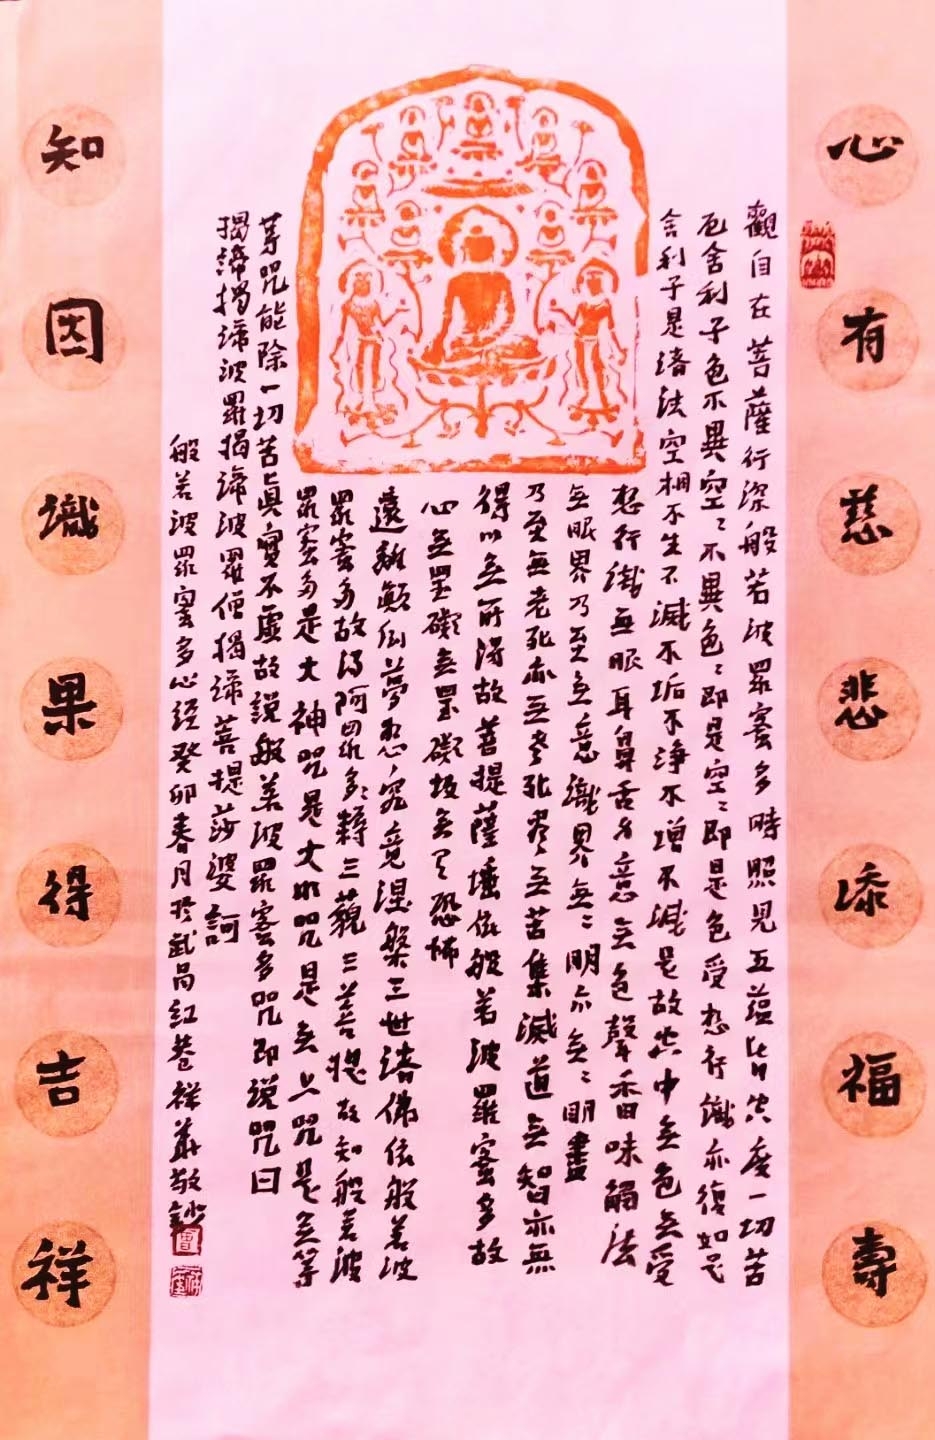 心有慈悲添福壽
觀自在菩薩行深般若波羅蜜多時照見五蘊皆空度一切苦
厄舍利子色不異空〻不異色〻即是空〻即是色受想行識亦復如是
舍利子是諸法空相不生不滅不垢不淨不增不減是故空中無色無受
想行識無眼耳鼻舌身意無色聲香味觸法
無眼界乃至無意識界無〻明亦無〻明盡
乃至無老死亦無老死盡無苦集滅道無智亦無
得以無所得故菩提薩埵依般若波羅蜜多故
心無罣礙無罣礙故無有恐怖
遠離顛倒夢想究竟涅槃三世諸佛依般若波
羅蜜多故得阿耨多羅三藐三菩提故知般若波
羅蜜多是大神咒是大明咒是無上咒是無等
等咒能除一切苦真實不虛故說般若波羅蜜多咒即說咒曰
揭諦揭諦波羅揭諦波羅僧揭諦菩提莎婆訶
般若波羅蜜多心經癸卯春月於武昌紅巷祥華敬鈔
知因識果得吉祥